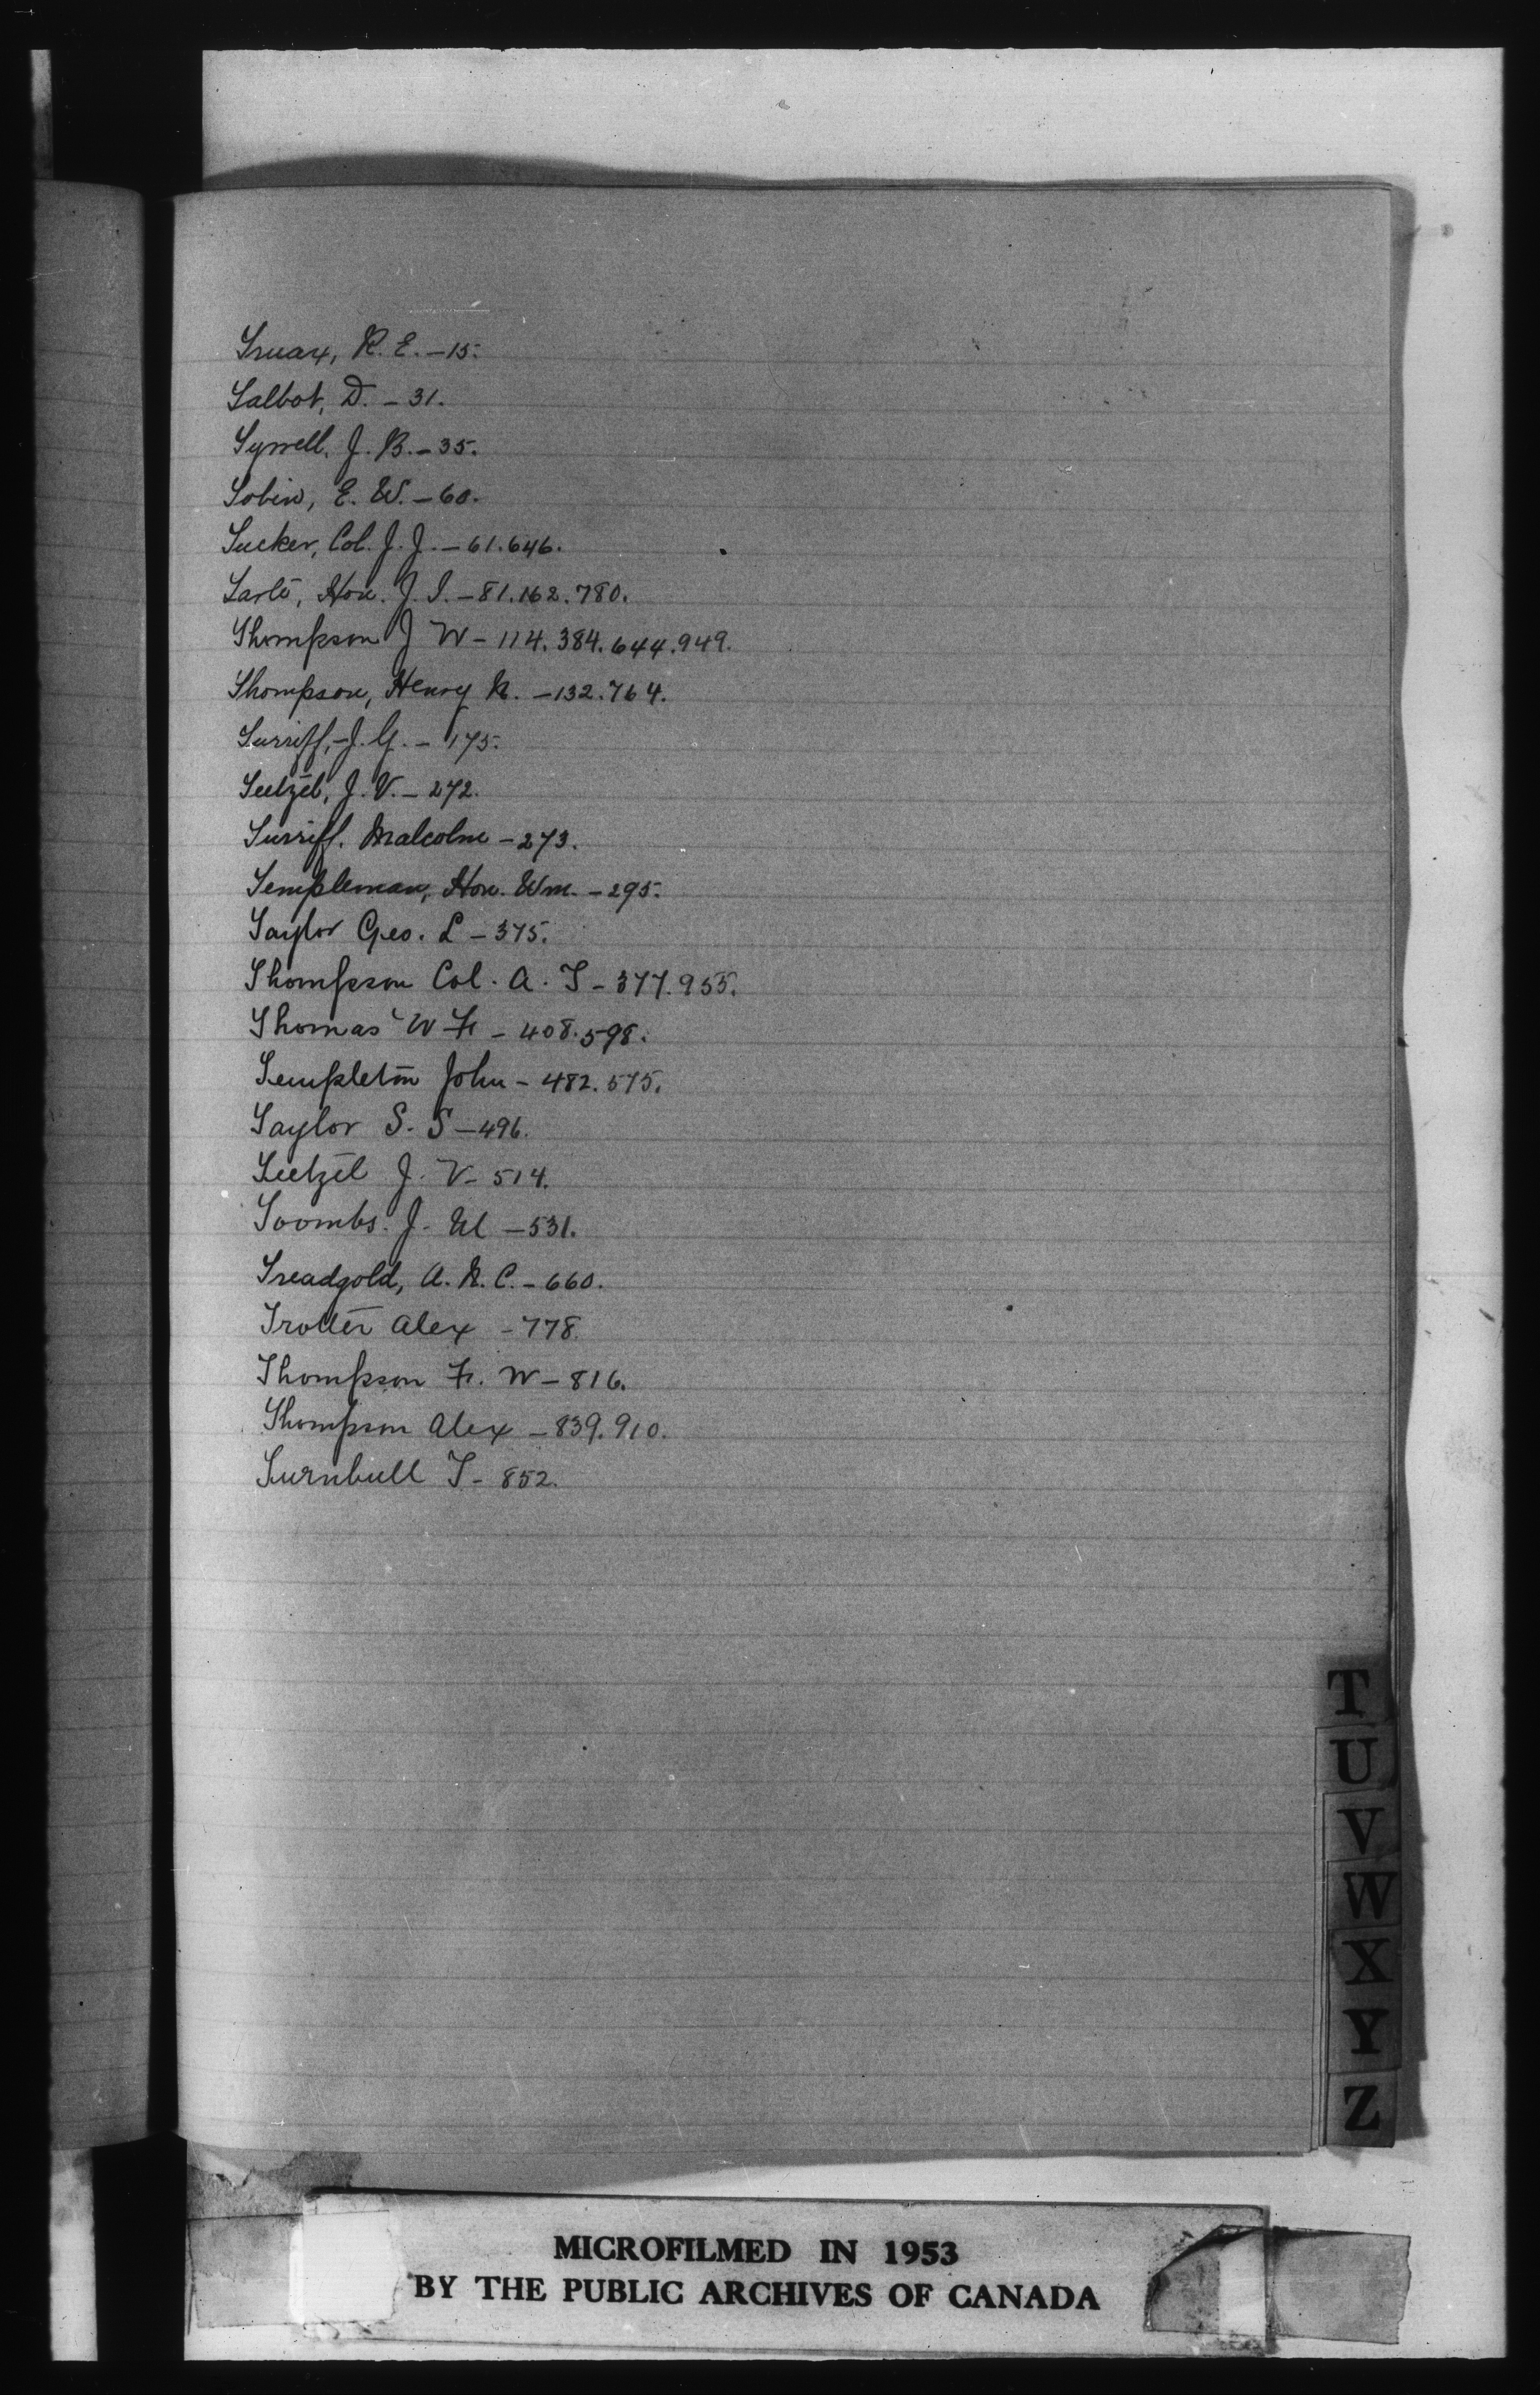 Truax, R. E. - 15.
Talbot, D. - 31.
Tyrrell, J. B. - 35.
Tobin, E. W. - 60.
Tucker, Col. J. J. - 61.646.
Tarte, Hon. J. I. - 81.162.780.
Thompson J W - 114.384.644.949.
Thompson, Henry N. - 132.764.
Turriff, J. G. - 175.
Teetzel, J. V. - 272.
Turriff, Malcolm - 273.
Templeman, Hon. Wm. - 295.
Taylor Geo. L - 375.
Thompson Col. A. T - 377.955.
Thomas W F - 408.598.
Templeton John - 482.575.
Taylor S. S - 496.
Teetzel J. V - 514.
Toombs. J. W - 531.
Treadgold, A. N. C. - 660.
Trotter Alex - 778.
Thompson F. W - 816.
Thompson Alex - 839.910.
Turnbull T - 852.
T
U
V
W
X
Y
Z
MICROFILMED IN 1953
BY THE PUBLIC ARCHIVES OF CANADA